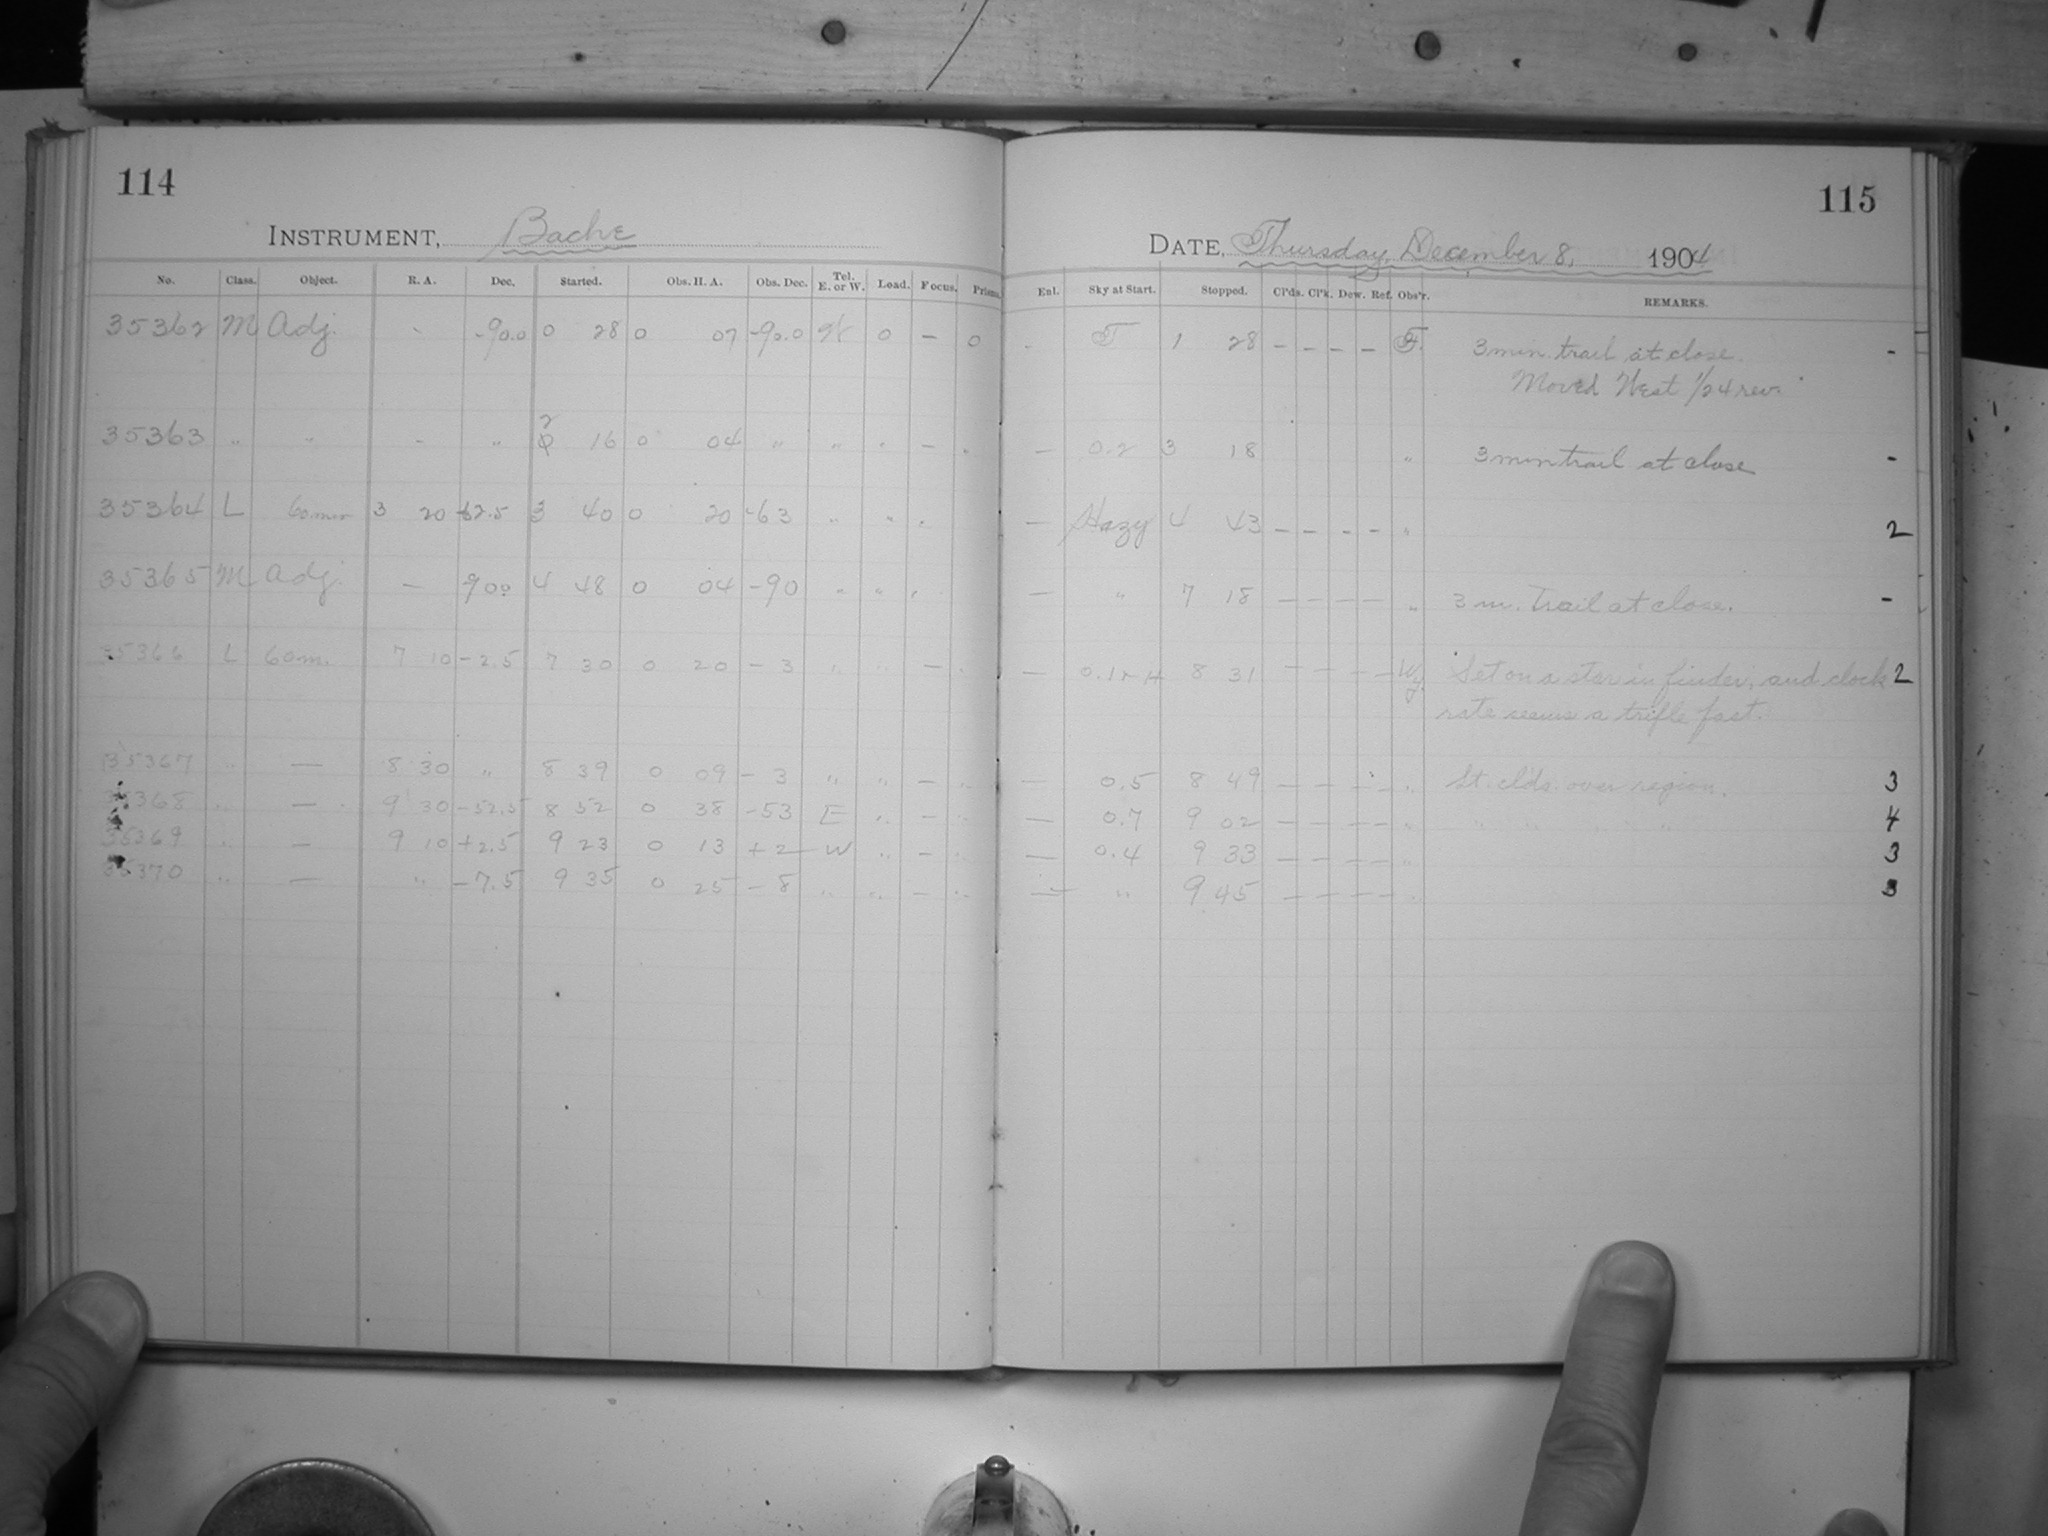 114
115
INSTRUMENT, Bache
DATE, Thursday, December 8, 1904
No. Class. Object. R. A. Dec. Started. Obs. H. A. Obs. Dec. Tel. E. or W. Load. Focus. Prisms. Enl. Sky at Start. Stopped. Cl'ds. Cl'k. Dew. Ref. Obs'r. REMARKS.
35362 M Adj. - -90.0 0 28 0 07 -90.0 W 0 - 0 - F 1 28 - - - - F. 3 min. trail at close. -
Moved West 1/24 rev.
35363 " " - " 2 16 0 04 " " " - " - 0.2 3 18 " 3 min trail at close -
35364 L 60 min 3 20 -62.5 3 40 0 20 -63 " " " - Hazy 4 43 - - - - " 2
35365 M Adj. - -90.0 4 48 0 04 -90 " " " - " 7 18 - - - - " 3 m. Trail at close. -
35366 L 60m. 7 10 -2.5 7 30 0 20 - 3 " " - " - 8 31 - - - - Set on a star in finder, and clock 2
rate seems a trifle fast.
35367 " - 8 30 " 8 39 0 09 - 3 " " - " - 0.5 8 49 - - - - " St. clds. over region. 3
35368 " - 9 30 -52.5 8 52 0 38 -53 E " - " - 0.7 9 02 - - - - " " " " " 4
35369 " - 9 10 +2.5 9 23 0 13 +2 W " - " - 0.4 9 33 - - - - " 3
35370 " - " -7.5 9 35 0 25 - 8 " " - " - " 9 45 - - - - " 3